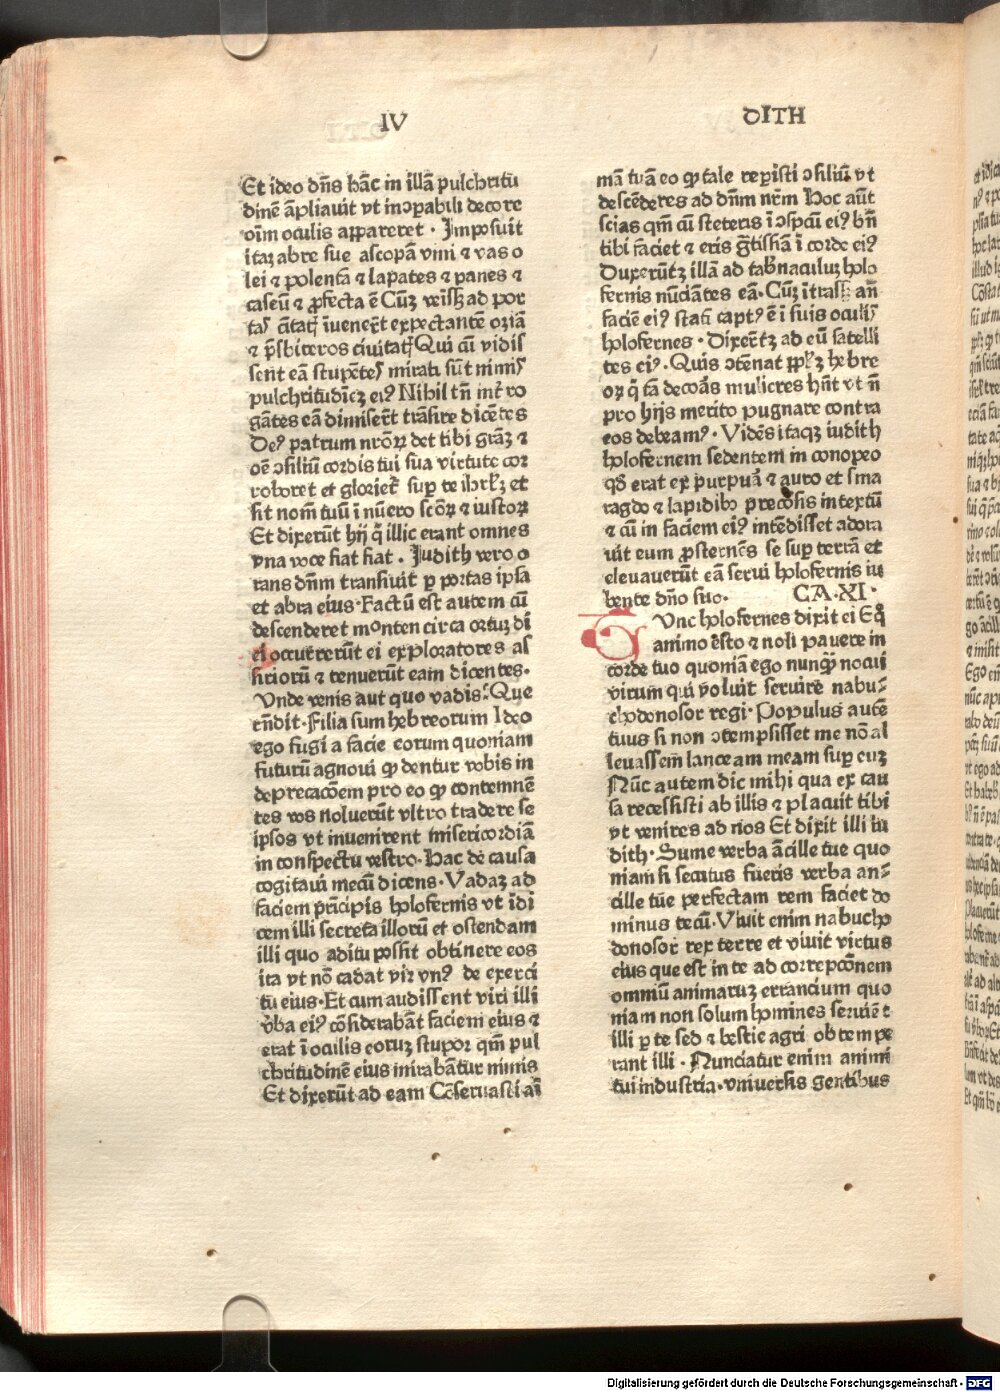 IV
DITH
Et ideo dñs hãc in illã pulchritu
dinẽ ãpliavit vt inↄpabili decore
oĩm oculis appareret · Imposuit
itaꝫ abre sue ascopã vini ⁊ vas o
lei ⁊ polentã ⁊ lapates ⁊ panes ⁊
caseũ ⁊ ꝓfecta ẽ Cũꝫ veissꝫ ad por
ciuitatꝭ ĩuenert expectantẽ oziã
⁊ p̃sbiteros ciuitatꝭ Qui cũ vidis
sent eã stupẽtes mirati sũt nimis
pulchritudinẽꝫ eiꝰ Nihil tñ int̃ro
gãtes eã dimisert̃ trãsire dicẽtes
Deꝰ patrum nr̃oꝝ det tibi grãꝫ ⁊
oẽ ↄsiliũ cordis tui sua virtute cor
roboret et glorieť sup te ihrlꝫ et
sit nom̃ tuũ ĩ nũero scõꝝ ⁊ iustoꝝ
Et dixerũt hij q̃ illic erant omnes
vna voce fiat fiat . Judith vero o
rans dñm transiuit p portas ipsa
et abra eius·Factũ est autem cũ
descenderet monten circa ortuꝫ di
ei occurrerũt ei exploratores as
siriorũ ⁊ tenuerũt eam dicentes.
Vnde venis aut quo vadis: Que
rñdit·Filia sum hebreorum Ideo
ego fugi a facie eorum quoniam
futurũ agnoui ꝙ dentur vobis in
deprecacõem pro eo ꝙ contemnẽ
tes vos noluerũt vltro tradere se
ipsos vt inuenirent misericordiã
in conspectu vestro·Hac de causa
cogitaui mecũ dicens·Vadaꝫ ad
faciem prĩcipis holofernis vt ĩdi
cem illi secreta illorũ et ostendam
illi quo aditu possit obtinere eos
ita vt nõ cadat vir vnꝰ de exerci
tu eius·Et cum audissent viri illi
vba eiꝰ cõsiderabãt faciem eius ⁊
erat ĩ oculis eoruꝫ stupor qm̃ pul
chritudinẽ eius mirabãtur nimis
Et dixerũt ad eam Cõseruasti aĩ
mã tuã eo ꝙ tale repisti ↄsiliũ vt
descẽderes ad dñm nr̃m Hoc aũt
scias qm̃ cũ steteris ĩ ↄspcũ eiꝰ bñ
tibi faciet ⁊ eris gtissĩã ĩ corde eiꝰ
Duxerũtꝫ illã ad tab̃naculuꝫ holo
fernis nũciãtes eã·Cũꝫ ĩtrassꝫ añ
faciẽ eiꝰ stati captꝰ ẽ ĩ suis oculis
holofernes · Dixert̃ꝫ ad eũ satelli
tes eiꝰ·Quis ↄtẽnat pplꝫ hebre
oꝝ q̃ tã decoras mulieres hñt vt ñ
pro hijs merito pugnare contra
eos debeamꝰ·Vidẽs itaqꝫ iudith
holofernem sedentem in conopeo
qď erat ex purpuã ⁊ auro et sma
ragdo ⁊ lapidibꝰ precosis intextũ
⁊ cũ in faciem eiꝰ intẽdisset adora
uit eum ꝓsternẽs se sup terrã et
eleuauerũt eã serui holofernis iu
bente dño suo· CA·XI·
Tunc holofernes dixit ei Eq̃
animo esto ⁊ noli pauere in
corde tuo quoniã ego nunq̃ nocui
virum qui voluit seruire nabu
chodonosor regi·Populus autẽ
tuus si non ↄtempsisset me nõ al
leuassem lanceam meam sup euꝫ
Nũc autem dic mihi qua ex cau
sa recessisti ab illis ⁊ placuit tibi
vt venires ad nos Et dixit illi iu
dith·Sume verba ãcille tue quo
niam si secutus fueris verba an
cille tue perfectam rem faciet do
minus tecũ·Viuit enim nabucho
donosor rex terre et viuit virtus
eius que est in te ad correpcõnem
omniũ animaruꝫ errancium quo
niam non solum homines seruiẽt
illi p te sed ⁊ bestie agri obtempe
rant illi · Nunciatur enim animi
tui industria·vniuersis gentibus
Digitalisierung gefördert durch die Deutsche Forschungsgemeinschaft - DFG